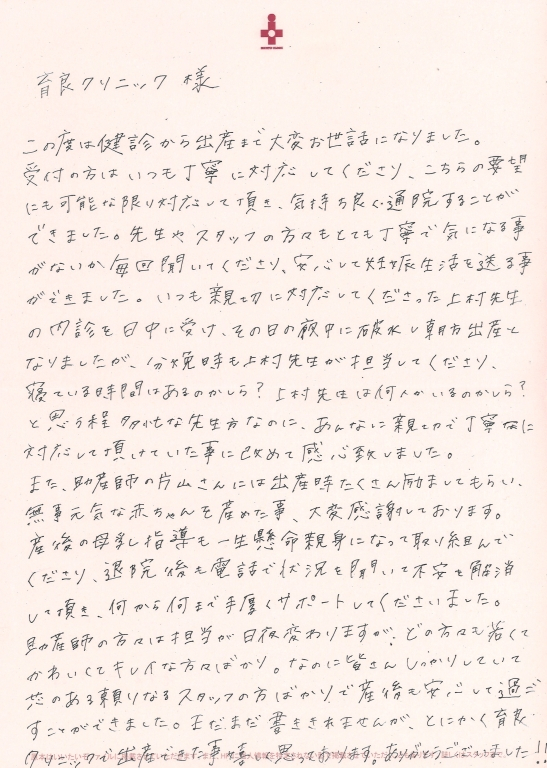 育良クリニック 様
この度は健診から出産まで大変お世話になりました。
受付の方はいつも丁寧に対応してくださり、こちらの要望
にも可能な限り対応して頂き、気持ち良く通院することが
できました。先生やスタッフの方々もとても丁寧で気になる事
がないか毎回聞いてくださり、安心して妊娠生活を送る事
ができました。いつも親切に対応してくださった上村先生
の内診を日中に受け、その日の夜中に破水し朝方出産と
なりましたが、分娩時も上村先生が担当してくださり、
寝ている時間はあるのかしら?上村先生は何人かいるのかしら?
と思う程多忙な先生方なのに、あんなに親切で丁寧に
対応して頂けていた事に改めて感心致しました。
また、助産師の片山さんには出産時たくさん励ましてもらい、
無事元気な赤ちゃんを産めた事、大変感謝しております。
産後の母乳指導も一生懸命親身になって取り組んで
くださり、退院後も電話で状況を聞いて不安を解消
して頂き、何から何まで手厚くサポートしてくださいました。
助産師の方々は担当が日夜変わりますが、どの方も若くて
かわいくてキレイな方々ばかり。なのに皆さんしっかりしていて
芯のある頼りなるスタッフの方ばかりで産後も安心して過ご
すことができました。まだまだ書ききれませんが、とにかく育良
クリニックで出産できた事 思っております。ありがとうございました!!